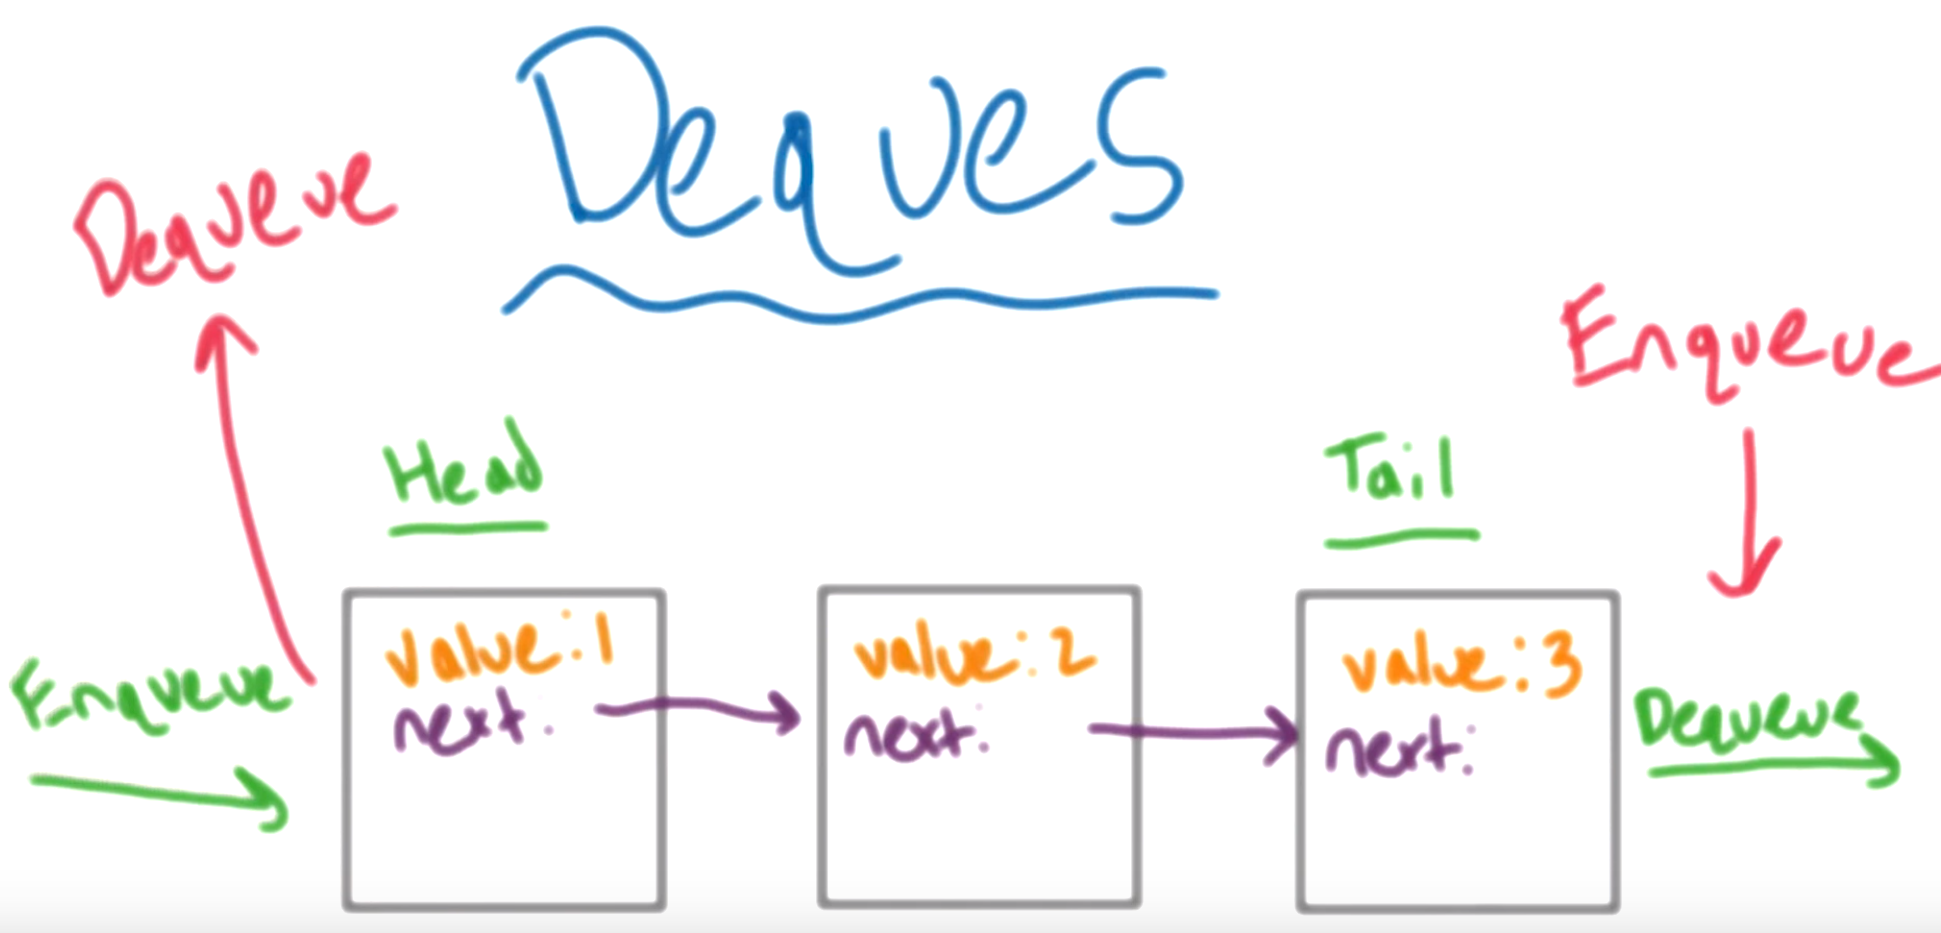 Deques
Dequeue
Enqueue
Head
Tail
value: 1
next:
value: 2
next:
value: 3
next:
Enqueue
Dequeue